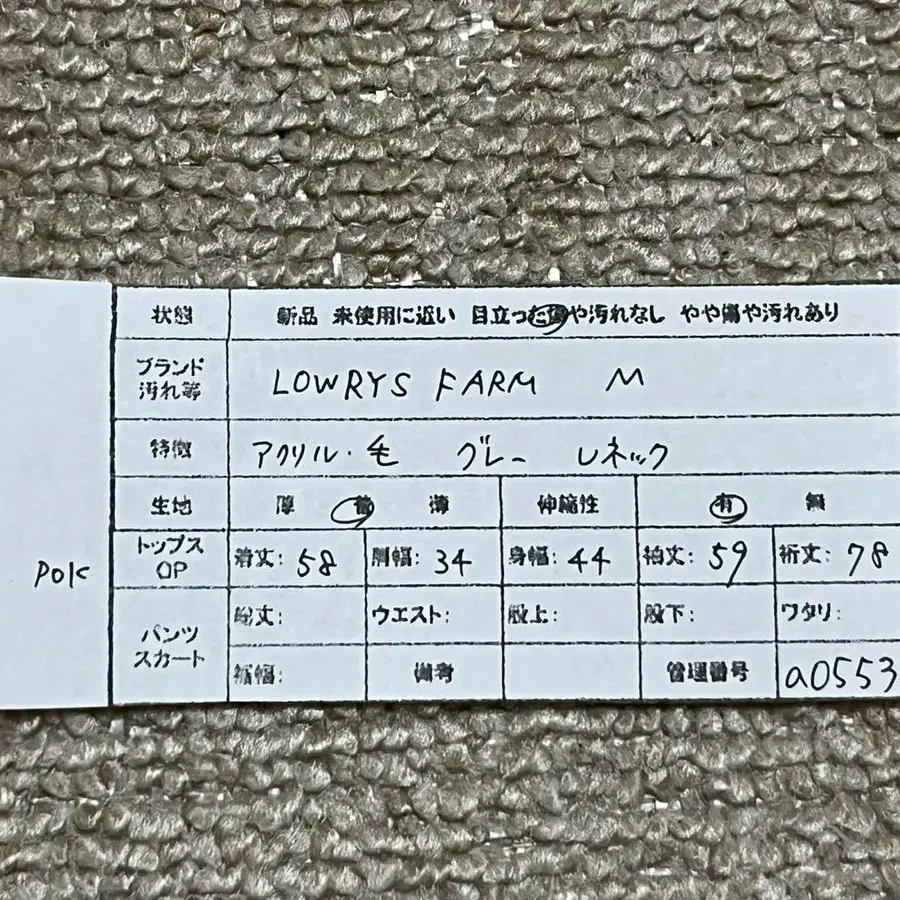 状態 新品 未使用に近い 目立った傷や汚れなし やや傷や汚れあり
ブランド
汚れ等 LOWRYS FARM M
特徴 アクリル・毛 グレー Uネック
生地 厚 普 薄 伸縮性 有 無
トップス
OP 着丈: 58 肩幅: 34 身幅: 44 袖丈: 59 裄丈: 78
POK
パンツ
スカート 総丈: ウエスト: 股上: 股下: ワタリ:
裾幅: 備考 管理番号 a0553